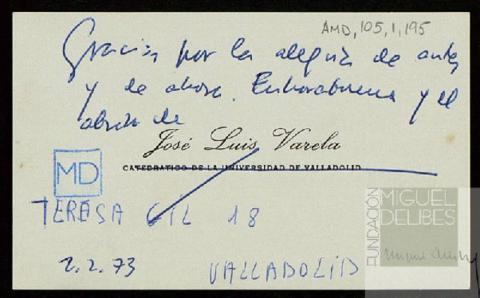 AMD, 105, 1, 195
Gracias por la alegría de antes
y de ahora. Enhorabuena y el
abrazo de
José Luis Varela
CATEDRATICO DE LA UNIVERSIDAD DE VALLADOLID
MD
TERESA GIL 18
2.2.73 VALLADOLID
FUNDACIÓN
MIGUEL
DELIBES